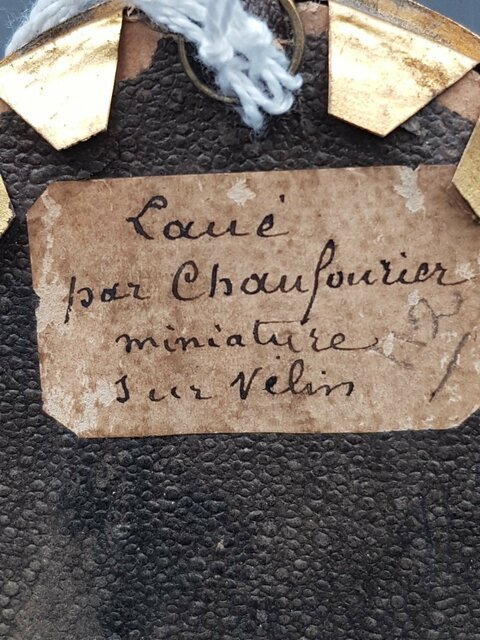 Laué
par Chaufourier
miniature
sur Vélin